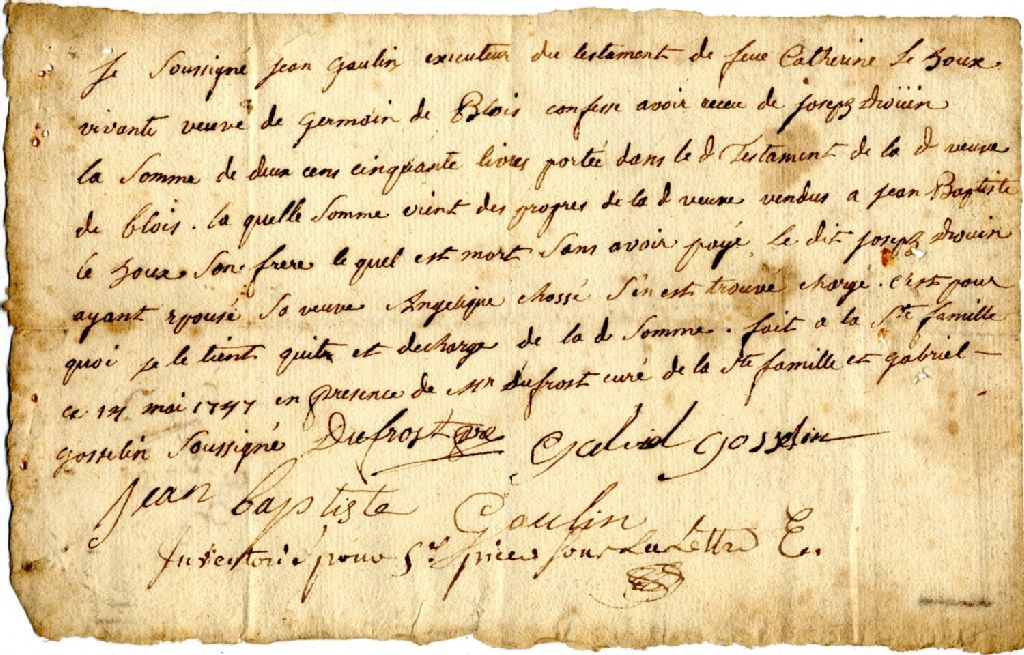 Je Soussigné jean Gaulin executeur du testament de feue Catherine Le houx
vivante veuve de Germain de Blois confesse avoir receu de joseph drouin
la Somme de deux cens cinquante livres portée dans le d Testament de la d veuve
de blois. la quelle Somme vient des propres de la d veuve vendus a jean Baptiste
le houx Son frere le quel est mort Sans avoir payé le dit joseph drouin
ayant epousé Sa veuve Angelique chossé S'en est trouvé chargé. c'est pour
quoi je le tient quite et decharge de la d Somme. fait a la Ste famille
ce 14 mai 1747 en presence de Mr dufrost curé de la Ste famille et gabriel
gosselin Soussigné Dufrost ptre Gabriel gosselin
jean baptiste Gaulin
Inventorié pour 5e piece sous la Lettre E.